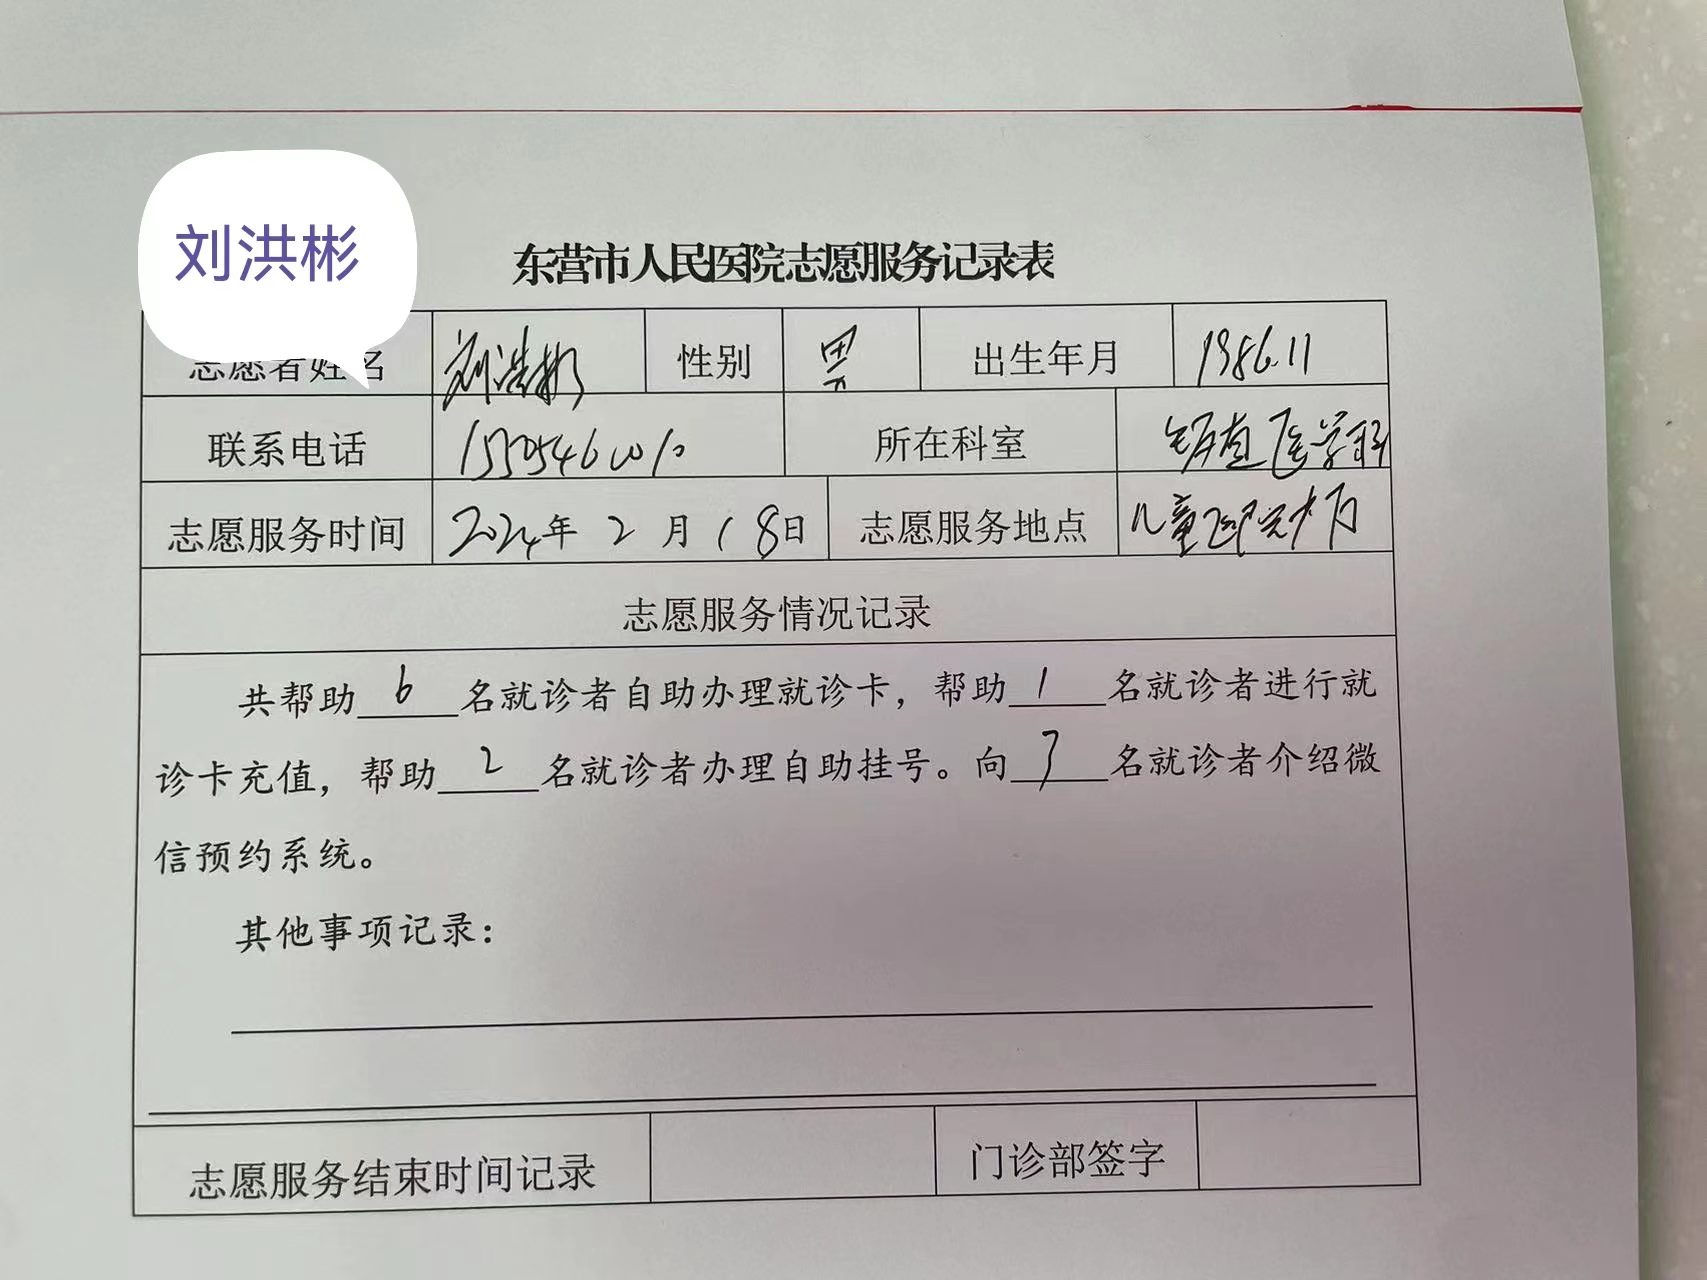 刘洪彬
东营市人民医院志愿服务记录表
志愿者姓名 刘洪彬 性别 男 出生年月 1986.11
联系电话 所在科室 医学科
志愿服务时间 2024年 2 月 18日 志愿服务地点 儿童医院大厅
志愿服务情况记录
共帮助 6 名就诊者自助办理就诊卡，帮助 1 名就诊者进行就
诊卡充值，帮助 2 名就诊者办理自助挂号。向 7 名就诊者介绍微
信预约系统。
其他事项记录：
志愿服务结束时间记录 门诊部签字